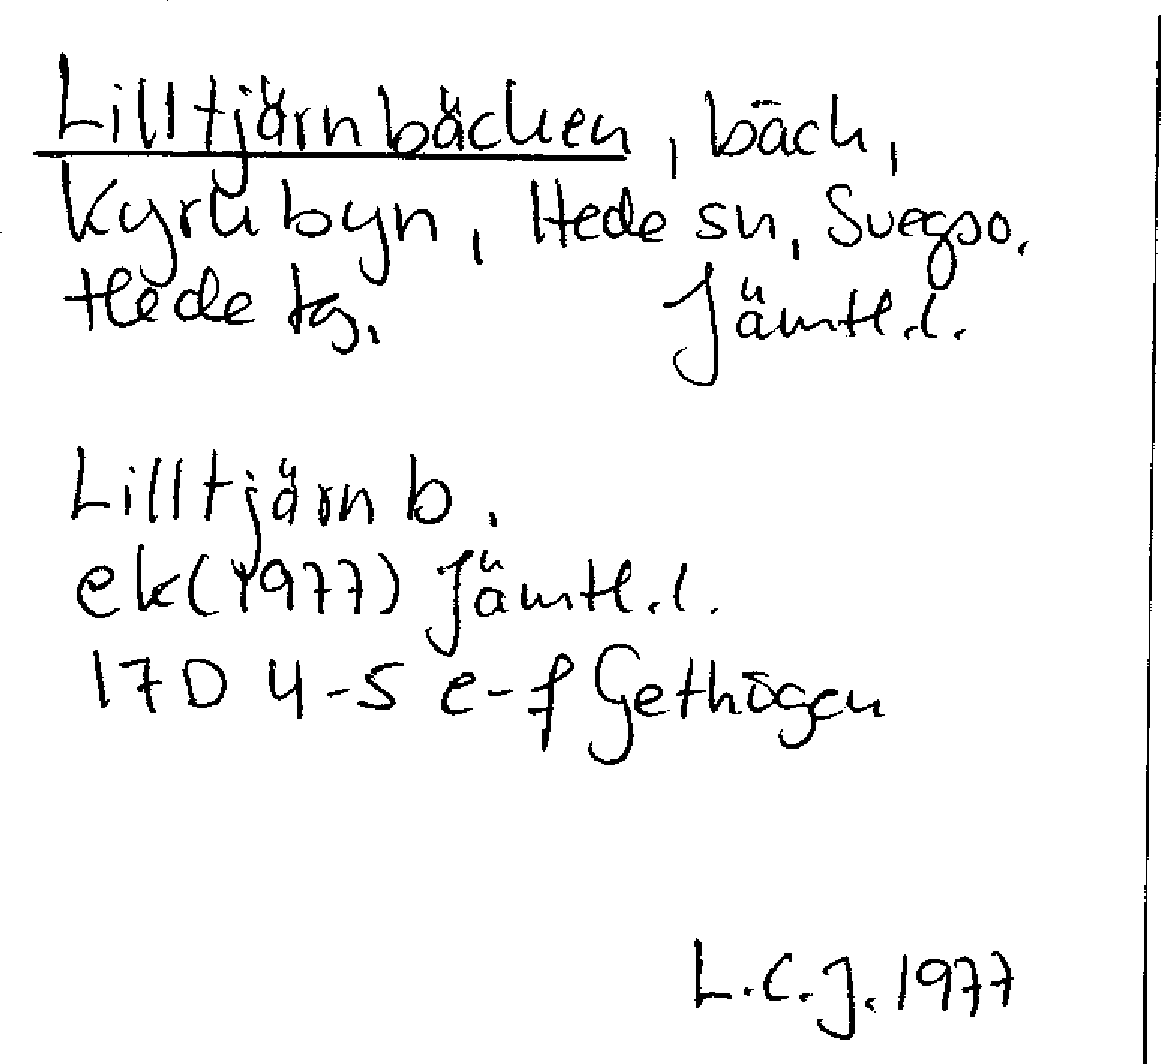 Lilltjärnbäcken, bäck,
Kyrkbyn, Hede sn, Svegs o.
Hede tg. Jämtl.l.
Lilltjärnb.
ek(1977) Jämtl.l.
17D 4-5 e-f Gethögen
L.C.J. 1977